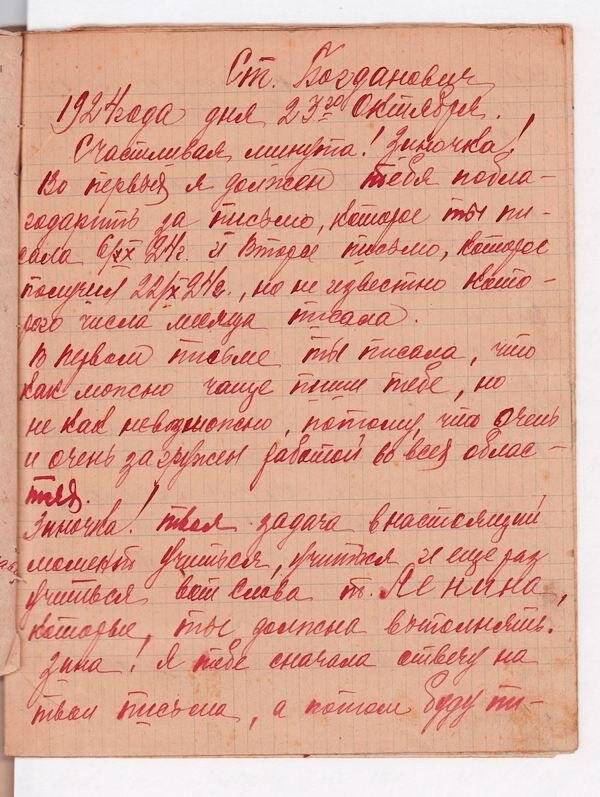 Ст. Богданович
1924 года дня 23го Октября.
Счастливая минута! Зиночка!
Во первых я должен тебя побла-
годарить за письмо, которое ты пи-
сала 6/IX 24г. и второе письмо, которое
получил 22/X 24г., но не известно кото-
рого числа месяца писала.
В первом письме ты писала, что
как можно чаще пиши тебе, но
не как невозможно, потому, что очень
и очень загружен работой во всех облас-
тях.
Зиночка! твоя задача в настоящий
момент учиться, учиться и еще раз
учиться вот слова т. Ленина,
которые, ты должна выполнять.
Зина! Я тебе сначала отвечу на
твои письма, а потом буду пи-